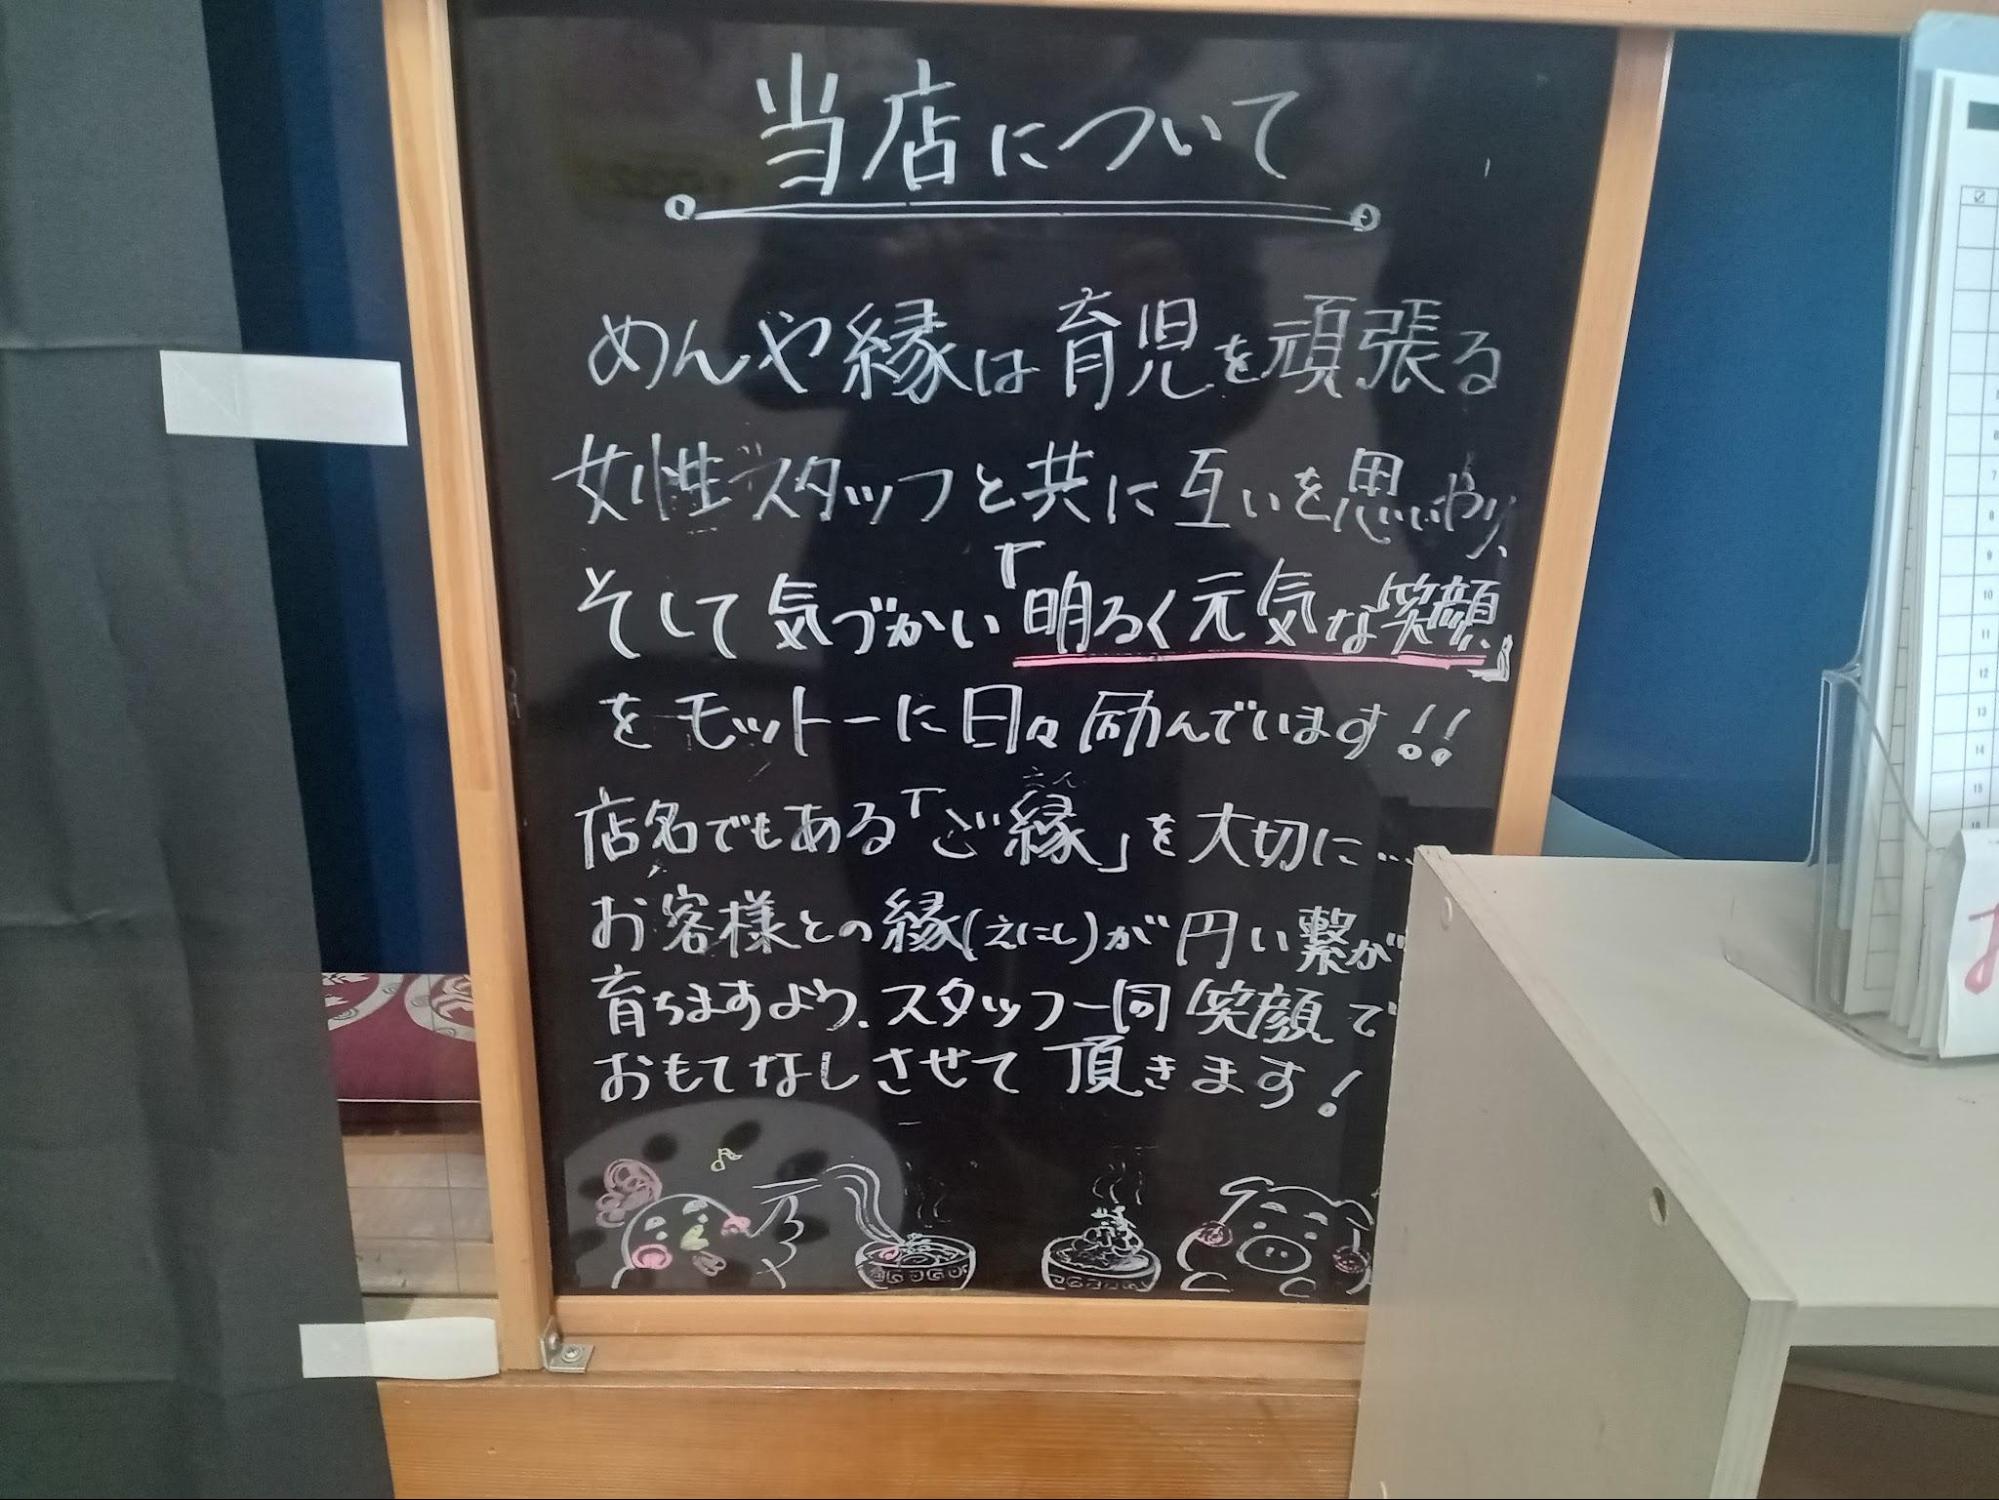 当店について
めんや縁は育児を頑張る
女性スタッフと共に互いを思いやり、
そして気づかい「明るく元気な笑顔」
をモットーに日々励んでいます!!
えん
店名でもある「ご縁」を大切に…
お客様との縁(えにし)が円い繋が
育ちますよう、スタッフ一同笑顔で
おもてなしさせて頂きます!
7
8
9
10
11
12
13
14
15